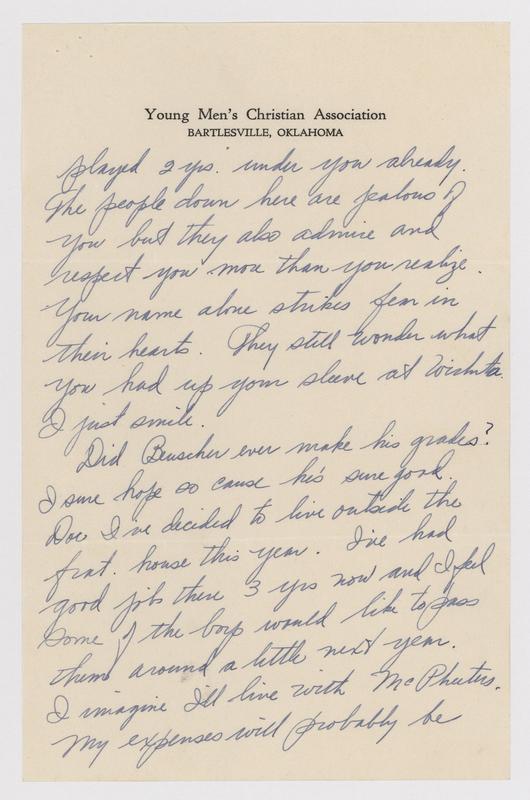 Young Men's Christian Association
BARTLESVILLE, OKLAHOMA
played 2 yrs. under you already.
The people down here are jealous of
you but they also admire and
respect you more than you realize.
Your name alone strikes fear in
their hearts. They still wonder what
you had up your sleeve at Wichita.
I just smile.
Did Beuscher ever make his grades?
I sure hope so cause he's sure good.
Doc I've decided to live outside the
frat. house this year. I've had
good jobs there 3 yrs now and I feel
some of the boys would like to pass
them around a little next year.
I imagine I'll live with McPheeters.
My expenses will probably be